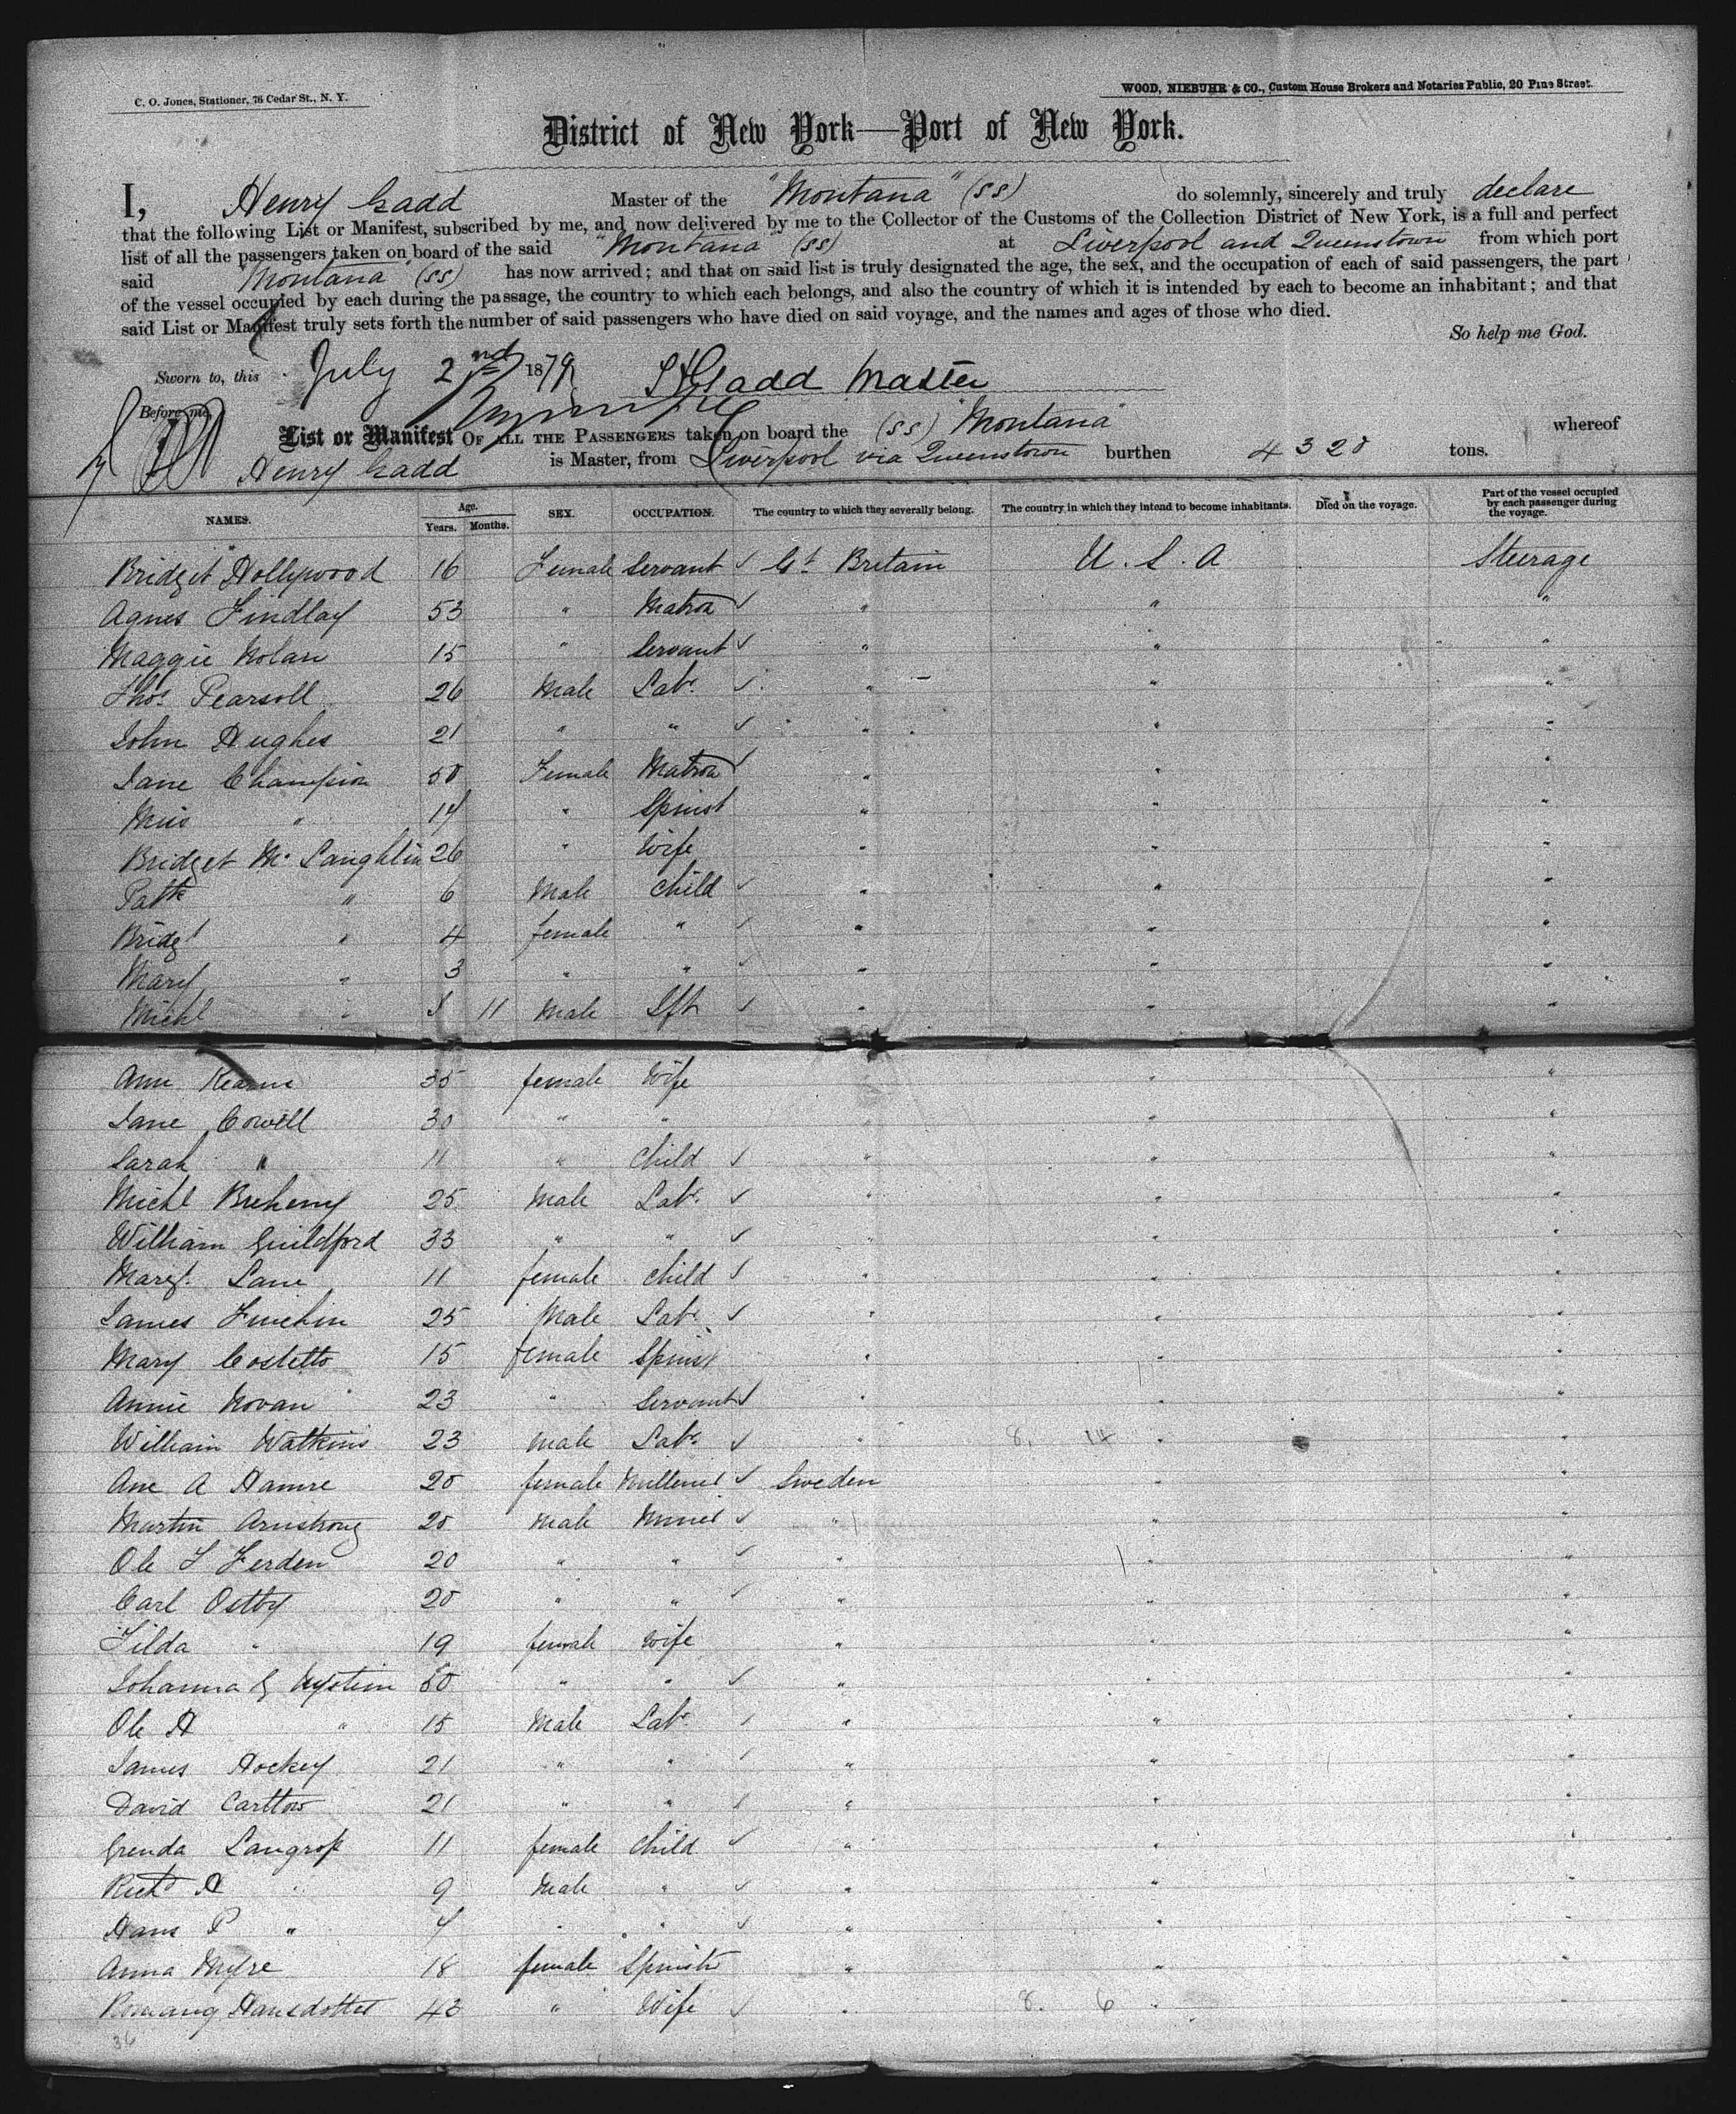 C. O. Jones, Stationer, 76 Cedar St., N. Y.
WOOD, NIEBUHR & CO., Custom House Brokers and Notaries Public, 20 Pine Street.
District of New York—Port of New York.
I, Henry Gadd Master of the "Montana" (SS) do solemnly, sincerely and truly declare
that the following List or Manifest, subscribed by me, and now delivered by me to the Collector of the Customs of the Collection District of New York, is a full and perfect
list of all the passengers taken on board of the said "Montana" (SS) at Liverpool and Queenstown from which port
said "Montana" (SS) has now arrived; and that on said list is truly designated the age, the sex, and the occupation of each of said passengers, the part
of the vessel occupied by each during the passage, the country to which each belongs, and also the country of which it is intended by each to become an inhabitant; and that
said List or Manifest truly sets forth the number of said passengers who have died on said voyage, and the names and ages of those who died.
So help me God.
Sworn to, this July 2nd 1879 Gadd Master
Before me,
List or Manifest OF ALL THE PASSENGERS taken on board the (SS) "Montana" whereof
Henry Gadd is Master, from Liverpool via Queenstown burthen 4320 tons.
NAMES. Age. Years. Months. SEX. OCCUPATION. The country to which they severally belong. The country in which they intend to become inhabitants. Died on the voyage. Part of the vessel occupied by each passenger during the voyage.
Bridget Hollywood 16 Female Servant ✓ Gt Britain U. S. A Steerage
Agnes Findlay 53 " Matron ✓ " " "
Maggie Nolan 15 " Servant ✓ " " "
Thos Pearsoll 26 Male Labr ✓ " " "
John Hughes 21 " " ✓ " " "
Jane Champion 50 Female Matron ✓ " " "
Miss " 14 " Spinst " " "
Bridget McLaughlin 26 " Wife " "
Patk " 6 Male Child ✓ " " "
Bridgt " 4 female " ✓ " " "
Mary " 3 " " ✓ " " "
Michl " 11 Male Ift ✓ " " "
Ann Kearns 35 female Wife " "
Jane Cowell 30 " " " "
Sarah " 11 " Child ✓ " " "
Michl Breheny 25 Male Labr ✓ " " "
William Guildford 33 " " ✓ " " "
Margt Lane 11 female Child ✓ " " "
James Finehin 25 Male Labr ✓ " " "
Mary Costello 15 female Spinst " " "
Annie Novan 23 " Servant ✓ " " "
William Watkins 23 male Labr ✓ " 8. 14 " "
Ane A Hamre 20 female Milliner ✓ Sweden " "
Martin Armstrong 20 Male Miner ✓ " " "
Ole Ferden 20 " " ✓ " " "
Carl Ostby 20 " " ✓ " " "
Tilda " 19 female Wife " " "
Johanna Nystein 50 " " ✓ " " "
Ole H " 15 Male Labr ✓ " " "
James Hockey 21 " " ✓ " " "
David Carttow 21 " " ✓ " " "
Grenda Langrop 11 female Child ✓ " " "
Richd A " 9 Male " ✓ " " "
Hans P " " " ✓ " " "
Anna Myre 18 female Spinstr " " "
Hansdotter 43 " Wife ✓ " 8. 6 " "
36